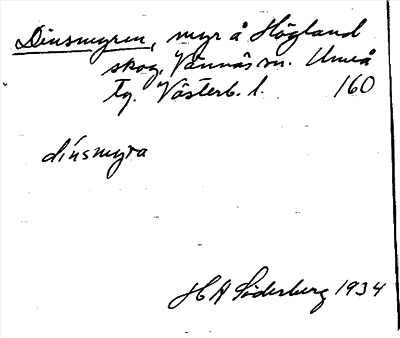 Dinsmyren, myr å Högland
skog, Vännäs sn. Umeå
tg. Västerb. l. 160
dinsmyra
H A Söderberg 1934